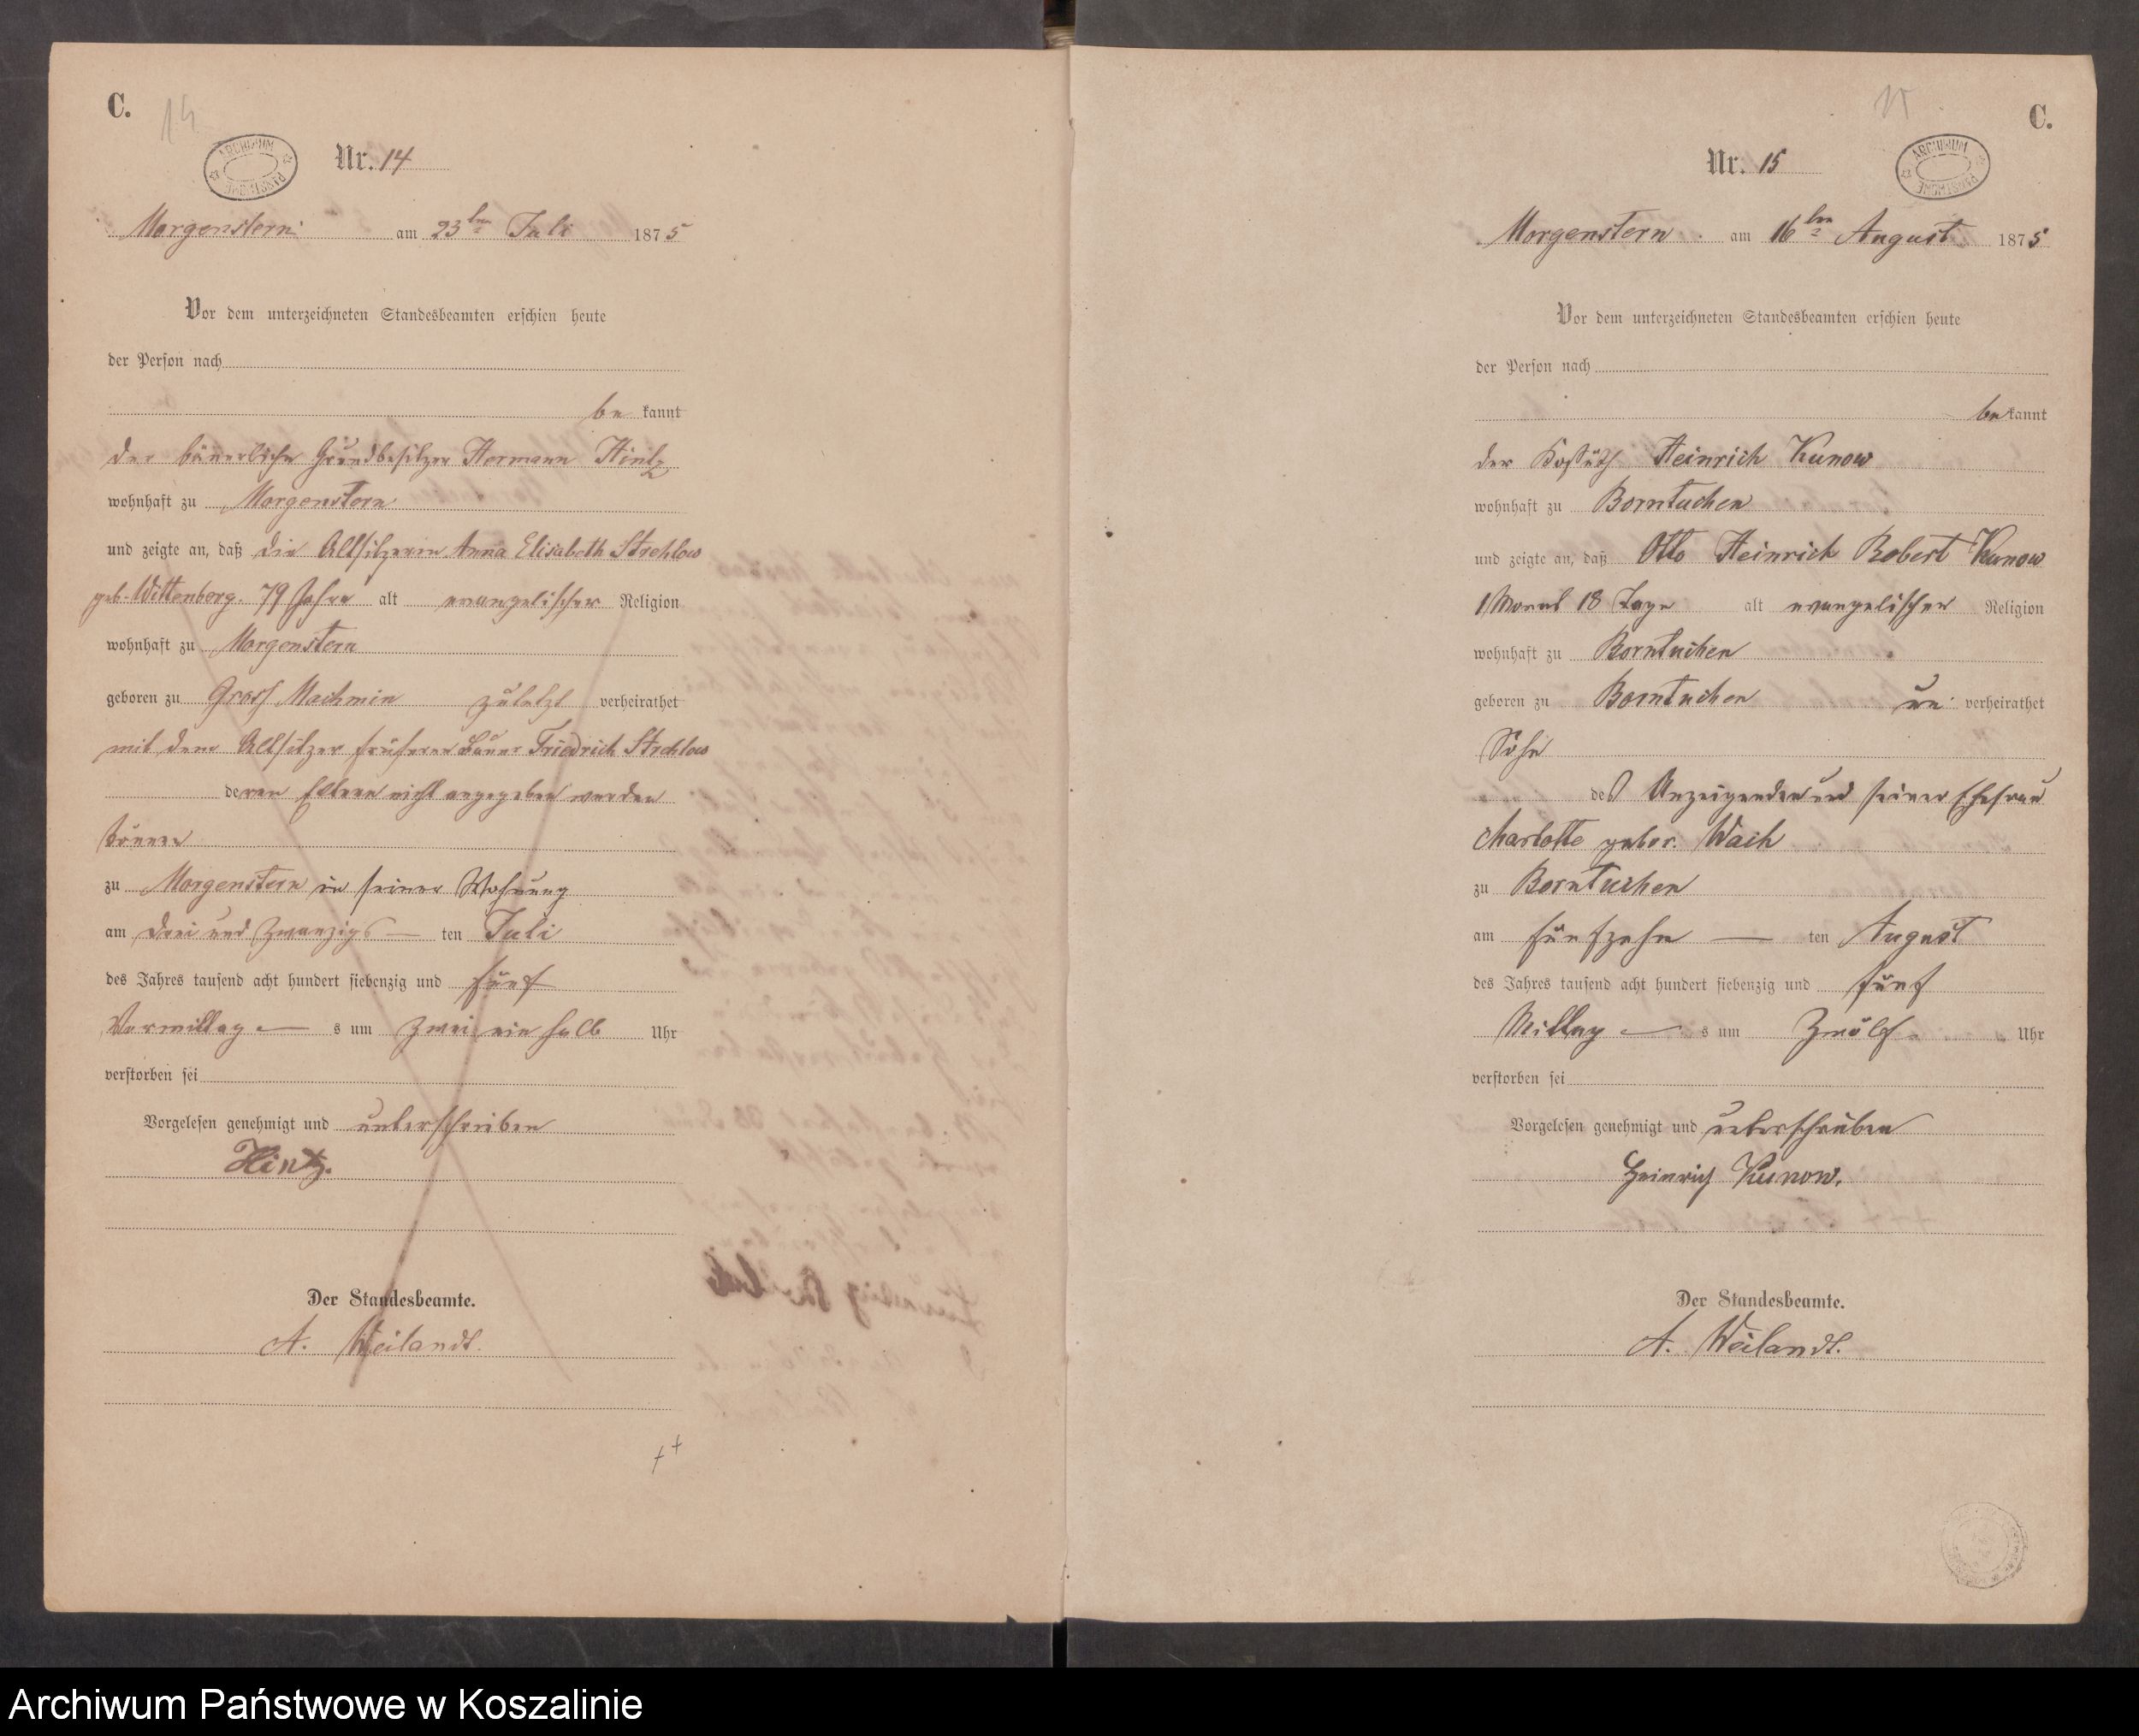 C.
14
ARCHIWUM PAŃSTWOWE
Nr. 14
Morgenstern am 23ten Juli 1875
Vor dem unterzeichneten Standesbeamten erschien heute
der Person nach
be kannt
der bäuerliche Grundbesitzer Hermann Hintz
wohnhaft zu Morgenstern
und zeigte an, daß die Altsitzerin Anna Elisabeth Strehlow
geb. Wittenberg. 79 Jahre alt evangelischer Religion
wohnhaft zu Morgenstern
geboren zu Gross Machmin zuletzt verheirathet
mit dem Altsitzer früheren Bauer Friedrich Strehlow
deren Eltern nicht angegeben werden
können
zu Morgenstern in seiner Wohnung
am drei und zwanzigs ten Juli
des Jahres tausend acht hundert siebenzig und fünf
Vormittag s um zwei ein halb Uhr
verstorben sei
Vorgelesen genehmigt und unterschrieben
Hintz.
Der Standesbeamte.
A. Weilandt.
15
C.
Nr. 15
ARCHIWUM PAŃSTWOWE
Morgenstern am 16ten August 1875
Vor dem unterzeichneten Standesbeamten erschien heute
der Person nach
be kannt
der Kossäth Heinrich Kunow
wohnhaft zu Borntuchen
und zeigte an, daß Otto Heinrich Robert Kunow
1 Monat 18 Tage alt evangelischer Religion
wohnhaft zu Borntuchen
geboren zu Borntuchen un verheirathet
Sohn
des Anzeigenden und seiner Ehefrau
Charlotte gebor.
zu Borntuchen
am fünfzehn ten August
des Jahres tausend acht hundert siebenzig und fünf
Mittag s um Zwölf Uhr
verstorben sei
Vorgelesen genehmigt und unterschrieben
Heinrich Kunow.
Der Standesbeamte.
A. Weilandt.
Archiwum Państwowe w Koszalinie